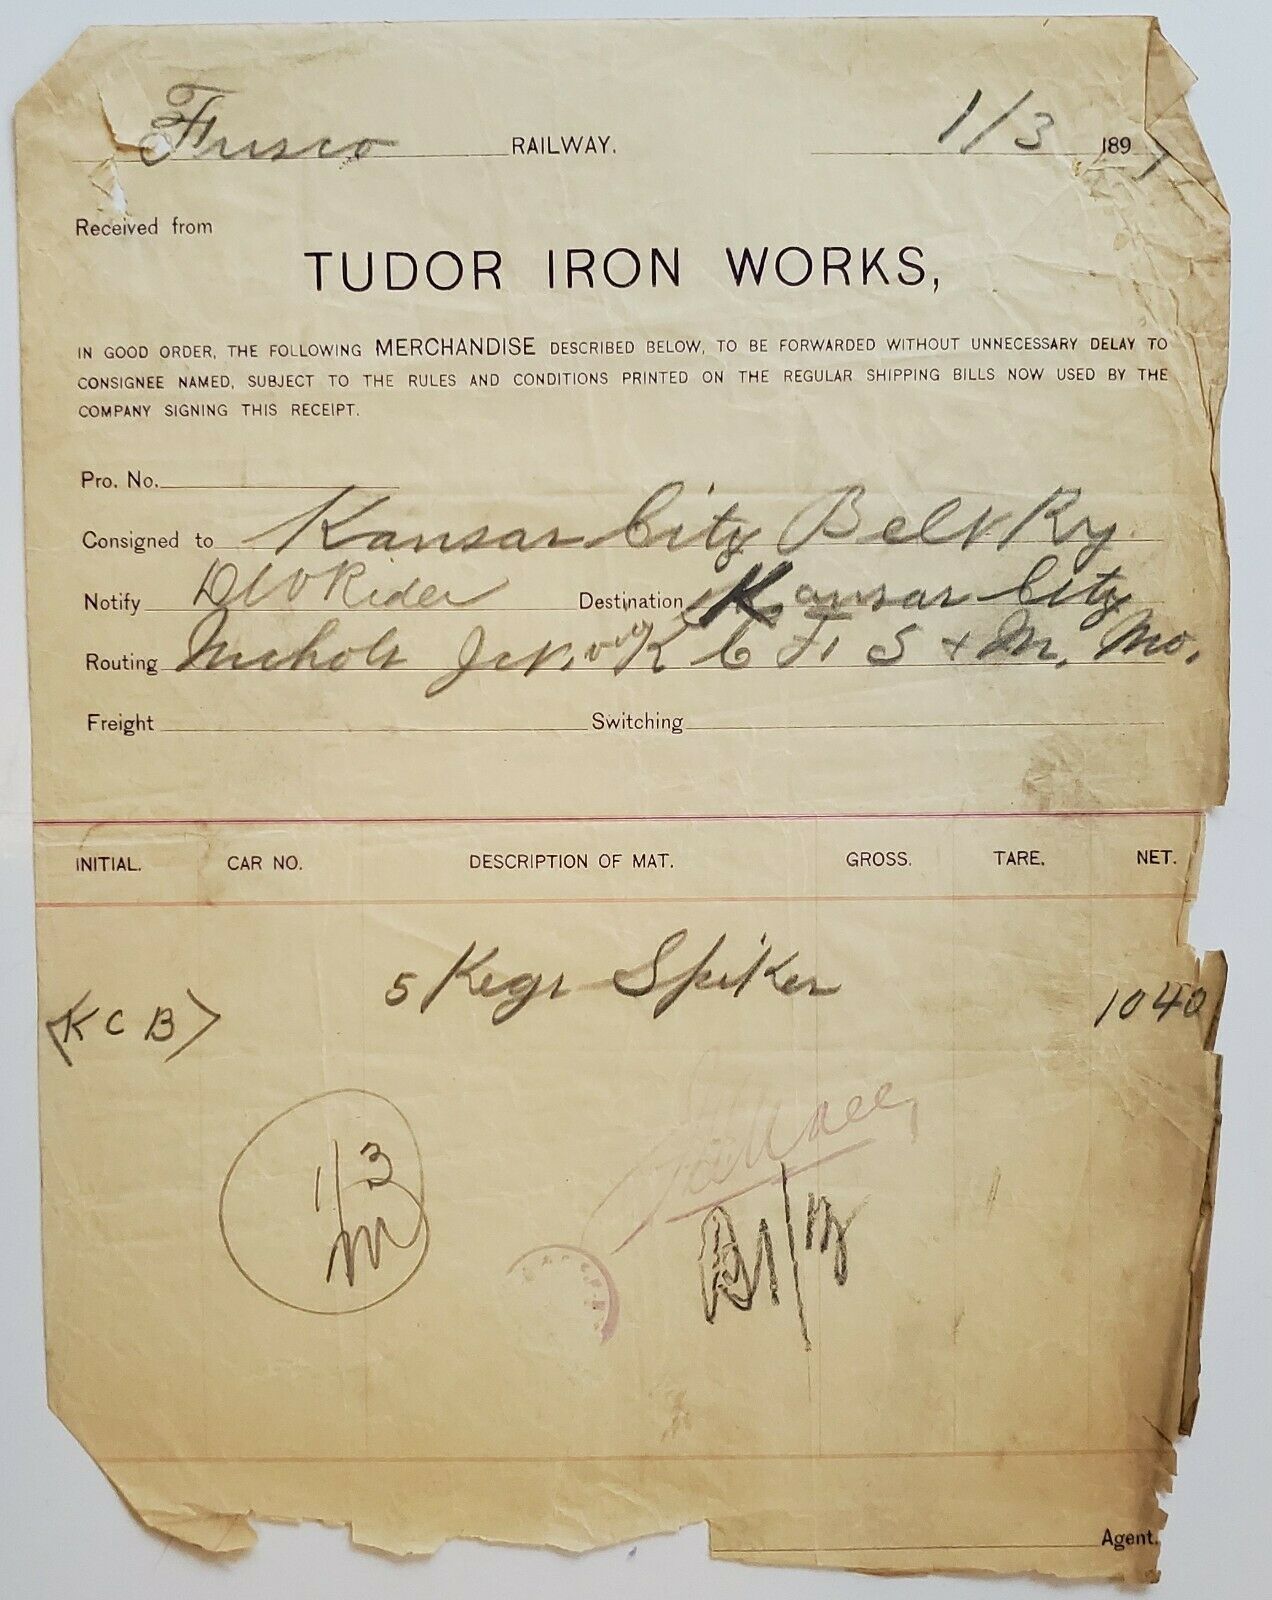 Frisco RAILWAY. 1/3 1897
Received from
TUDOR IRON WORKS,
IN GOOD ORDER, THE FOLLOWING MERCHANDISE DESCRIBED BELOW, TO BE FORWARDED WITHOUT UNNECESSARY DELAY TO
CONSIGNEE NAMED, SUBJECT TO THE RULES AND CONDITIONS PRINTED ON THE REGULAR SHIPPING BILLS NOW USED BY THE
COMPANY SIGNING THIS RECEIPT.
Pro. No.
Consigned to Kansas City Belt Ry
Notify Rider Destination Kansas City
Routing Nichols Jct. K C Ft S + M. Mo.
Freight Switching
INITIAL. CAR NO. DESCRIPTION OF MAT. GROSS. TARE. NET.
5 Kegs Spikes 1040
<KCB>
1/3
M
Agent.